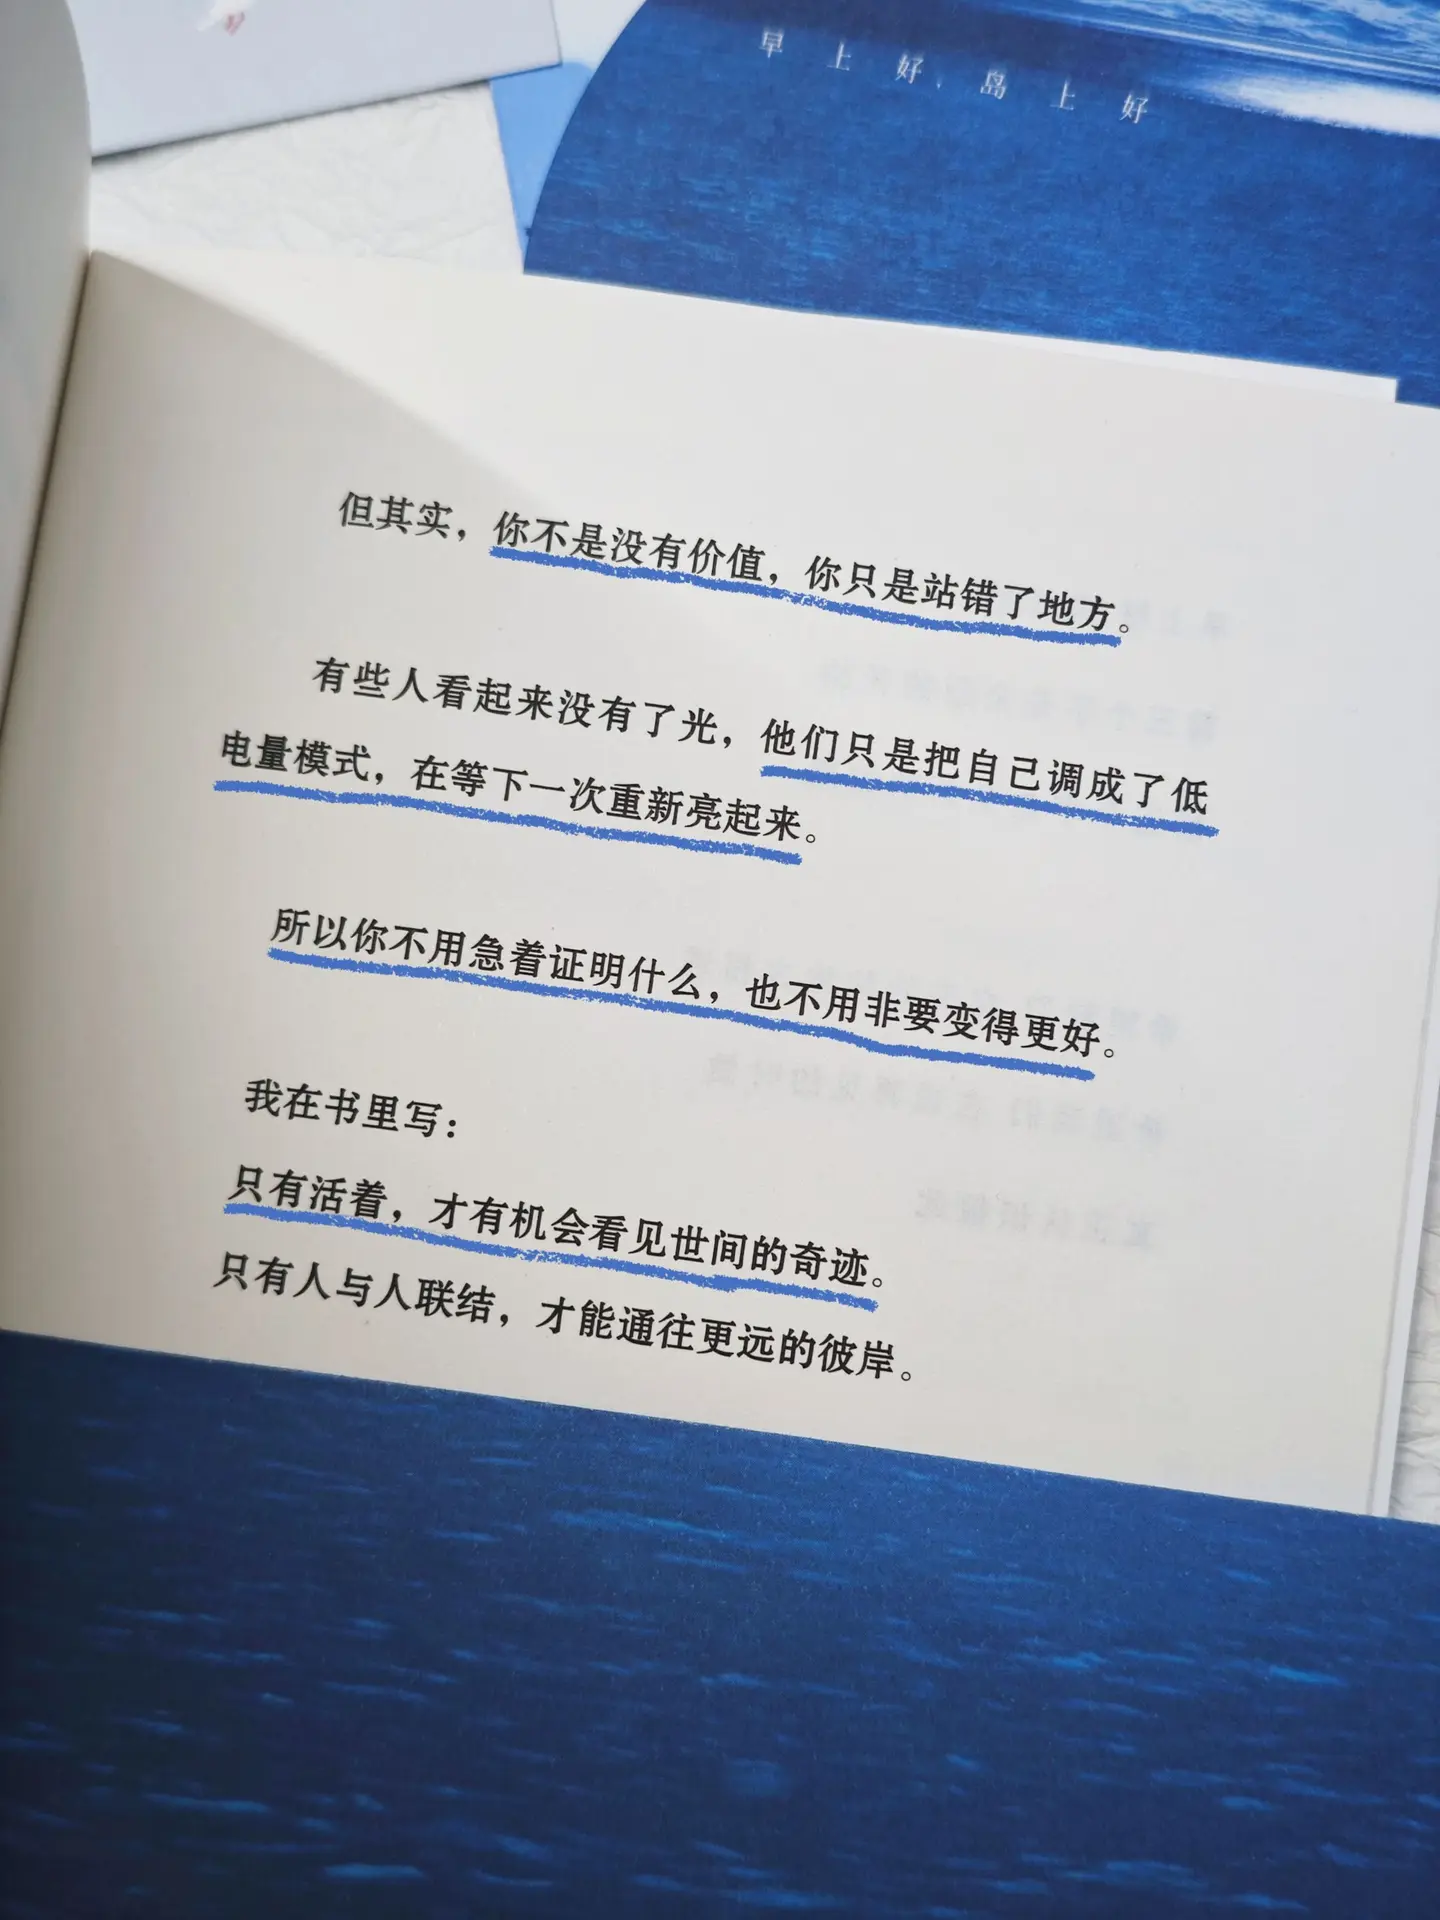 早上好、岛上好
但其实，你不是没有价值，你只是站错了地方。
有些人看起来没有了光，他们只是把自己调成了低
电量模式，在等下一次重新亮起来。
所以你不用急着证明什么，也不用非要变得更好。
我在书里写：
只有活着，才有机会看见世间的奇迹。
只有人与人联结，才能通往更远的彼岸。